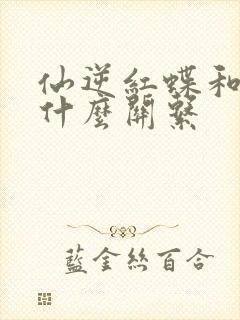 仙逆紅蝶和
什麼關繫
藍金絲百合